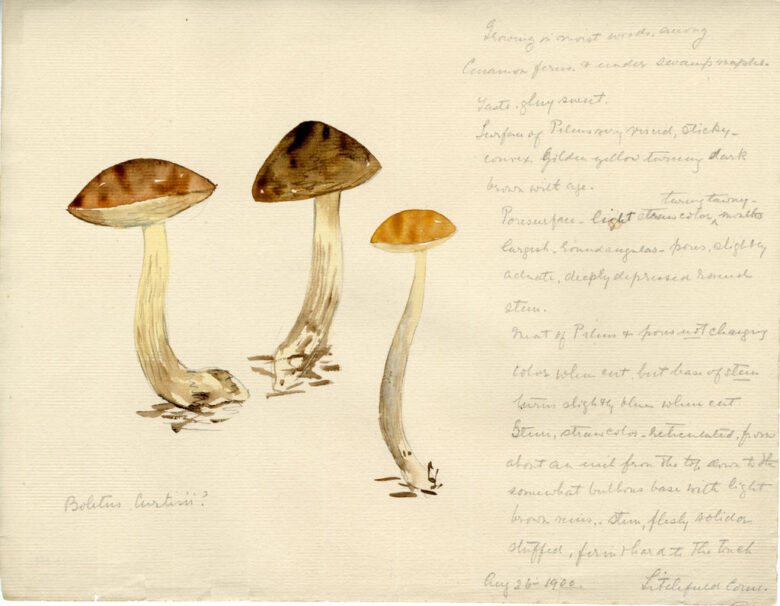 Growing in moist woods, among
Cinnamon ferns & under swamp maples.
Taste. gluy sweet.
Surface of Pileus very viscid, sticky-
convex. Golden yellow turning dark
brown with age.
turing tawny-
Poresurface - light straw color, mouths
largish - round angular - pores, slightly
adnate, deeply depressed round
stem.
Meat of Pileus & pores not changing
color when cut, but base of stem
turns slightly blue when cut
Stem, straw color - reticulated, from
about an inch from the top down to the
somewhat bulbous base with light
brown veins,. stem, fleshy solid or
stuffed, firm & hard to the touch
Aug 26th 1900. Litchfield Conn.
Boletus Curtisii?